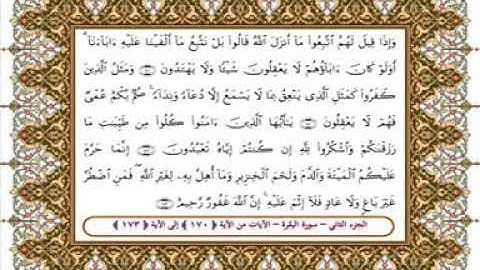 وَإِذَا قِيلَ لَهُمُ ٱتَّبِعُوا۟ مَآ أَنزَلَ ٱللَّهُ قَالُوا۟ بَلْ نَتَّبِعُ مَآ أَلْفَيْنَا عَلَيْهِ ءَابَآءَنَآ ۗ
أَوَلَوْ كَانَ ءَابَآؤُهُمْ لَا يَعْقِلُونَ شَيْـًٔا وَلَا يَهْتَدُونَ ﴿١٧٠﴾ وَمَثَلُ ٱلَّذِينَ
كَفَرُوا۟ كَمَثَلِ ٱلَّذِى يَنْعِقُ بِمَا لَا يَسْمَعُ إِلَّا دُعَآءً وَنِدَآءً ۚ صُمٌّۢ بُكْمٌ عُمْىٌ
فَهُمْ لَا يَعْقِلُونَ ﴿١٧١﴾ يَـٰٓأَيُّهَا ٱلَّذِينَ ءَامَنُوا۟ كُلُوا۟ مِن طَيِّبَـٰتِ مَا
رَزَقْنَـٰكُمْ وَٱشْكُرُوا۟ لِلَّهِ إِن كُنتُمْ إِيَّاهُ تَعْبُدُونَ ﴿١٧٢﴾ إِنَّمَا حَرَّمَ
عَلَيْكُمُ ٱلْمَيْتَةَ وَٱلدَّمَ وَلَحْمَ ٱلْخِنزِيرِ وَمَآ أُهِلَّ بِهِۦ لِغَيْرِ ٱللَّهِ ۖ فَمَنِ ٱضْطُرَّ
غَيْرَ بَاغٍ وَلَا عَادٍ فَلَآ إِثْمَ عَلَيْهِ ۚ إِنَّ ٱللَّهَ غَفُورٌ رَّحِيمٌ ﴿١٧٣﴾
الجزء الثاني – سورة البقرة – الآيات من الآية ﴿١٧٠﴾ إلى الآية ﴿١٧٣﴾